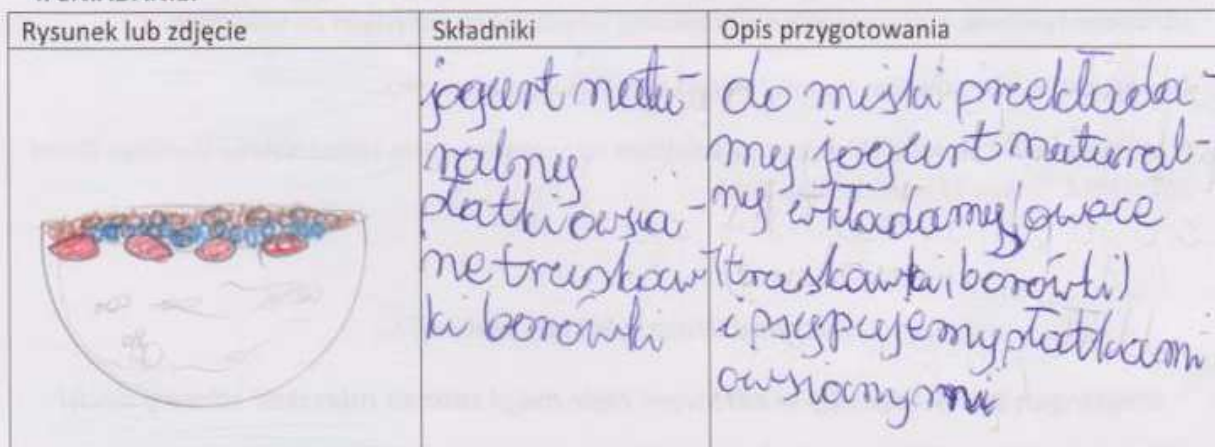 Rysunek lub zdjęcie
Składniki
Opis przygotowania
jogurt natu-
ralny
płatki owsia-
ne truskaw
ki borówki
do miski przekłada-
my jogurt natural-
ny wkładamy owoce
(truskawki, borówki)
i psypujemy płatkami
owsianymi